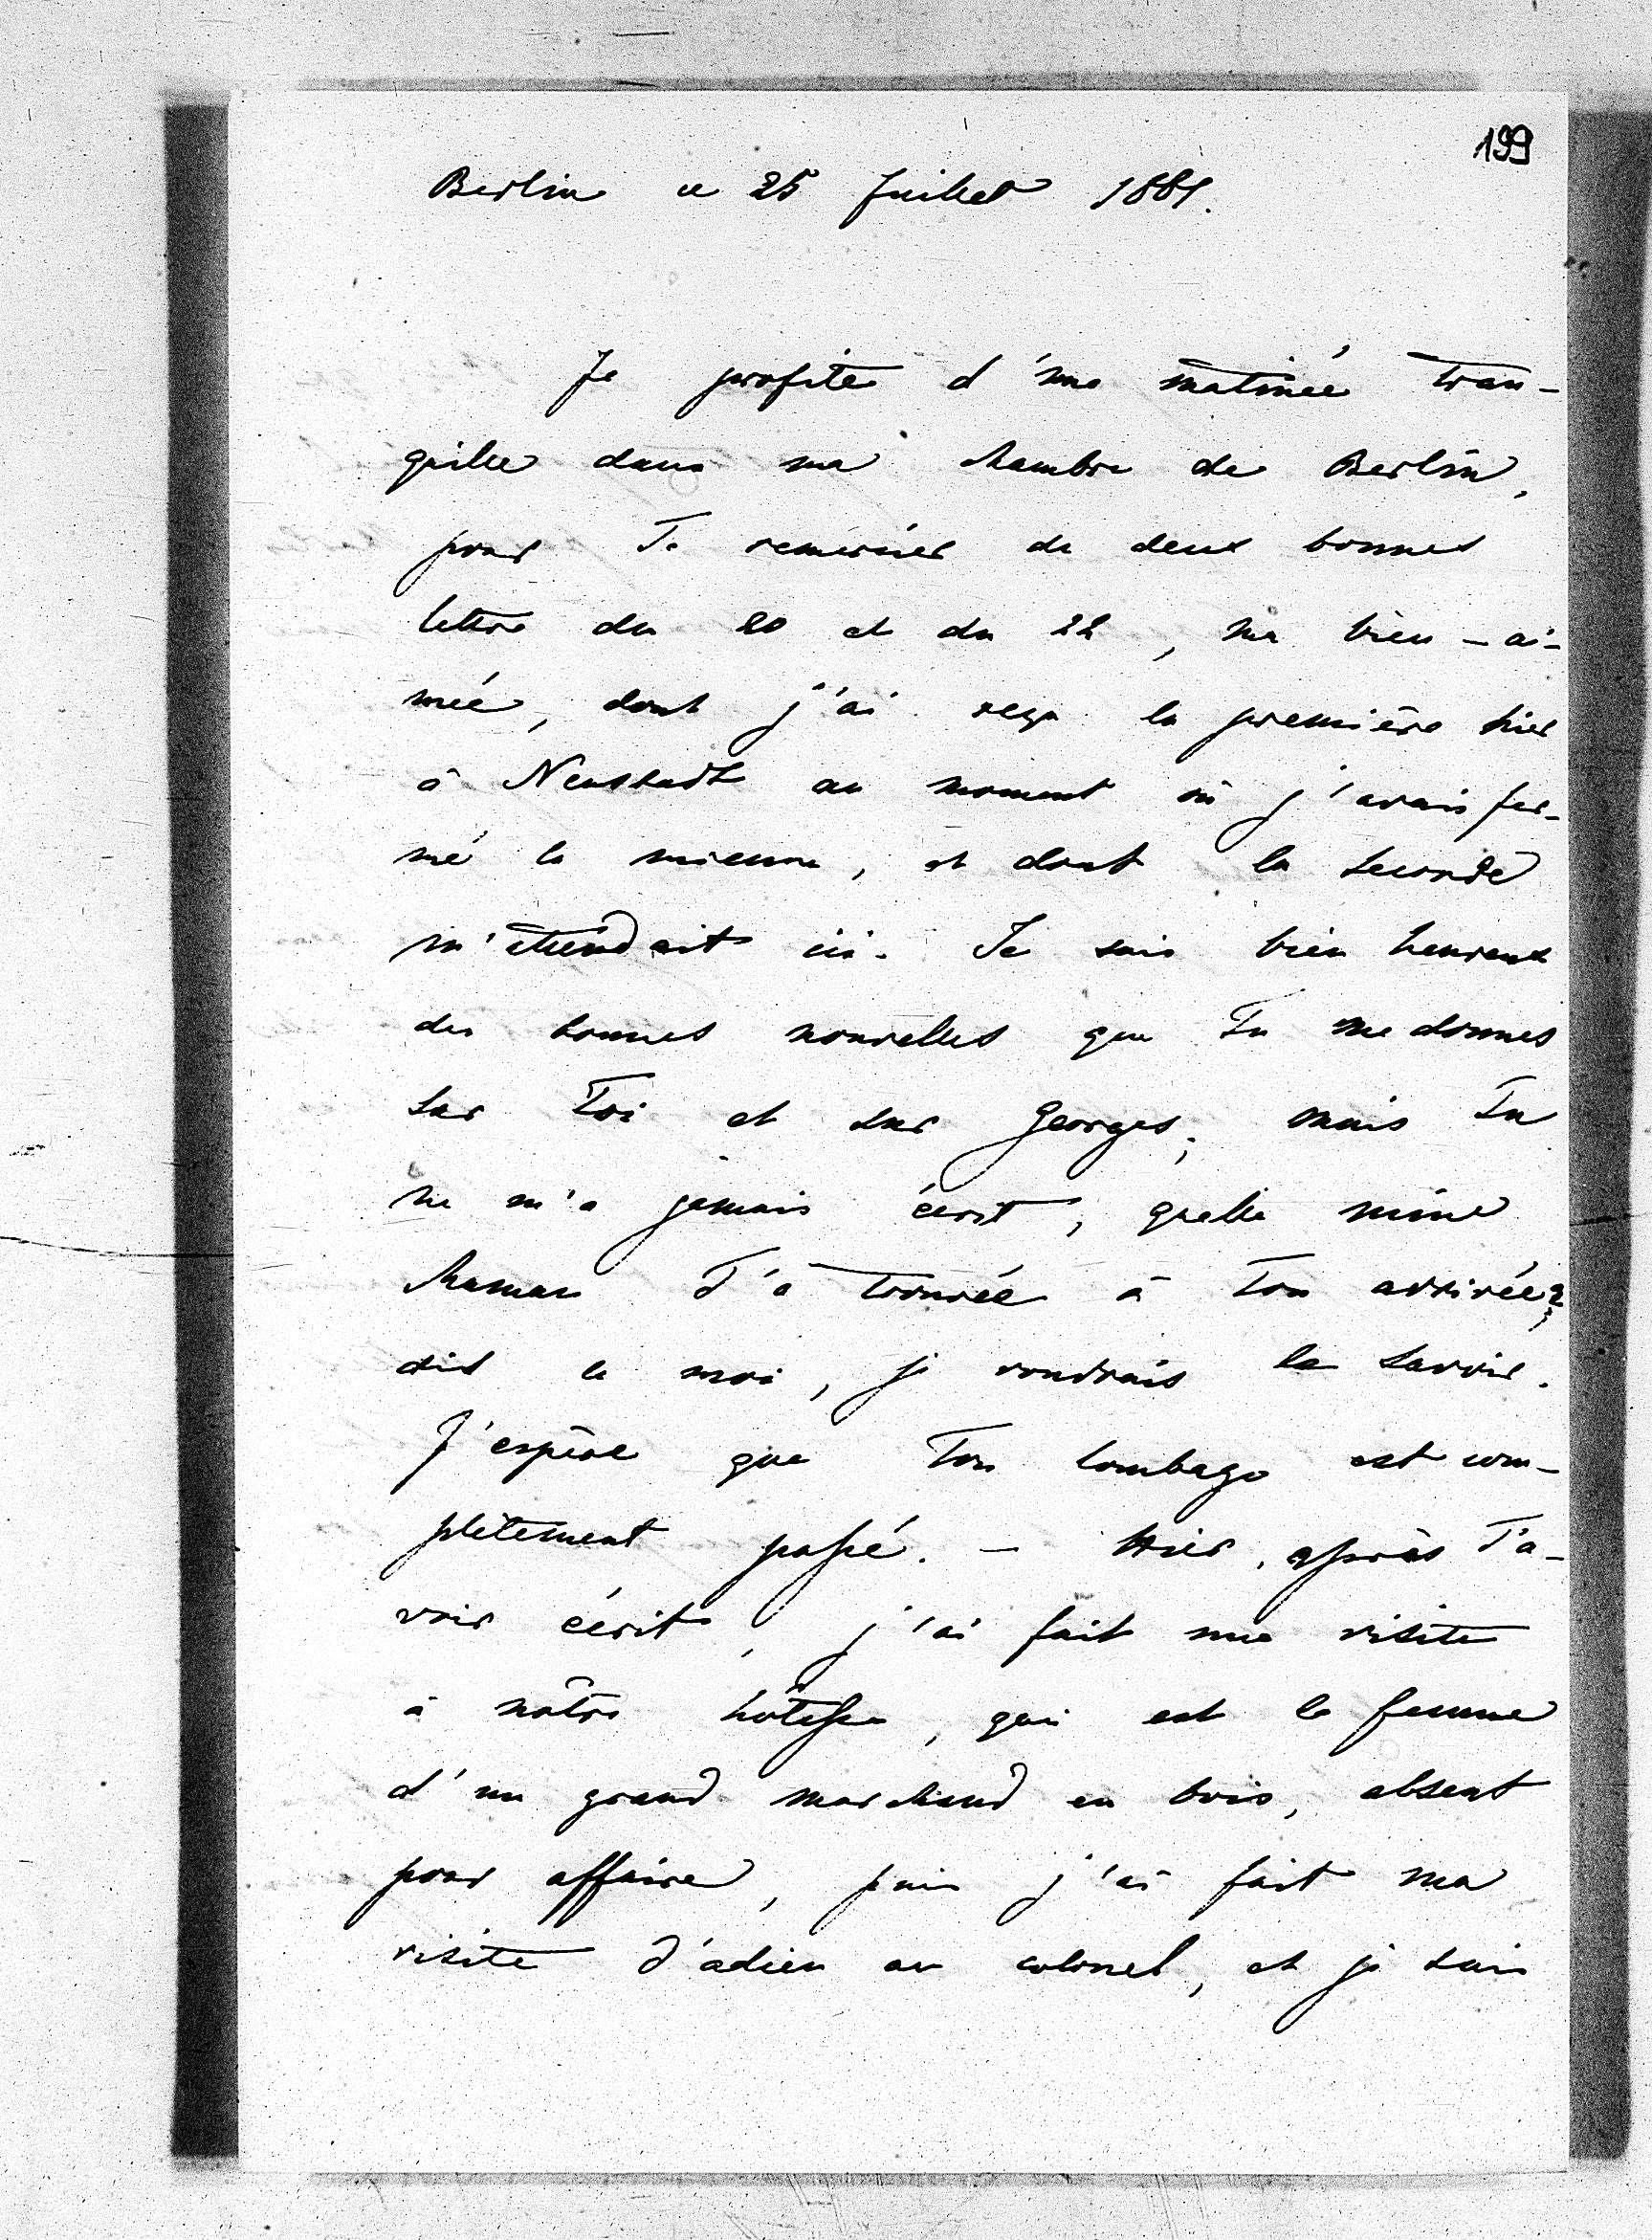 199
Berlin ce 25 Juillet 1881.
Je profite d'une matinée tran-
quille dans ma chambre de Berlin,
pour Te remercier de deux bonnes
lettre du 20 et du 22, ma bien-ai-
mée, dont j'ai reçu la première hier
à Neustadt au moment où j'avais fer-
mé la mienne, et dont la seconde
m'attendait ici. Je suis bien heureux
des bonnes nouvelles que Tu me donnes
sur Toi et sur Georges; mais Tu
ne m'a jamais écrit, quelle mine
Maman T'a trouvée à Ton arrivée?
dis le moi, je voudrais le savoir.
J'espère que Ton lombago est com-
plètement passé. - Hier, après T'a-
voir écrit, j'ai fait une visite
à nôtre hôtesse, qui est la femme
d'un grand marchand en bois, absent
pour affaire, puis j'ai fait ma
visite d'adieu au colonel, et je suis